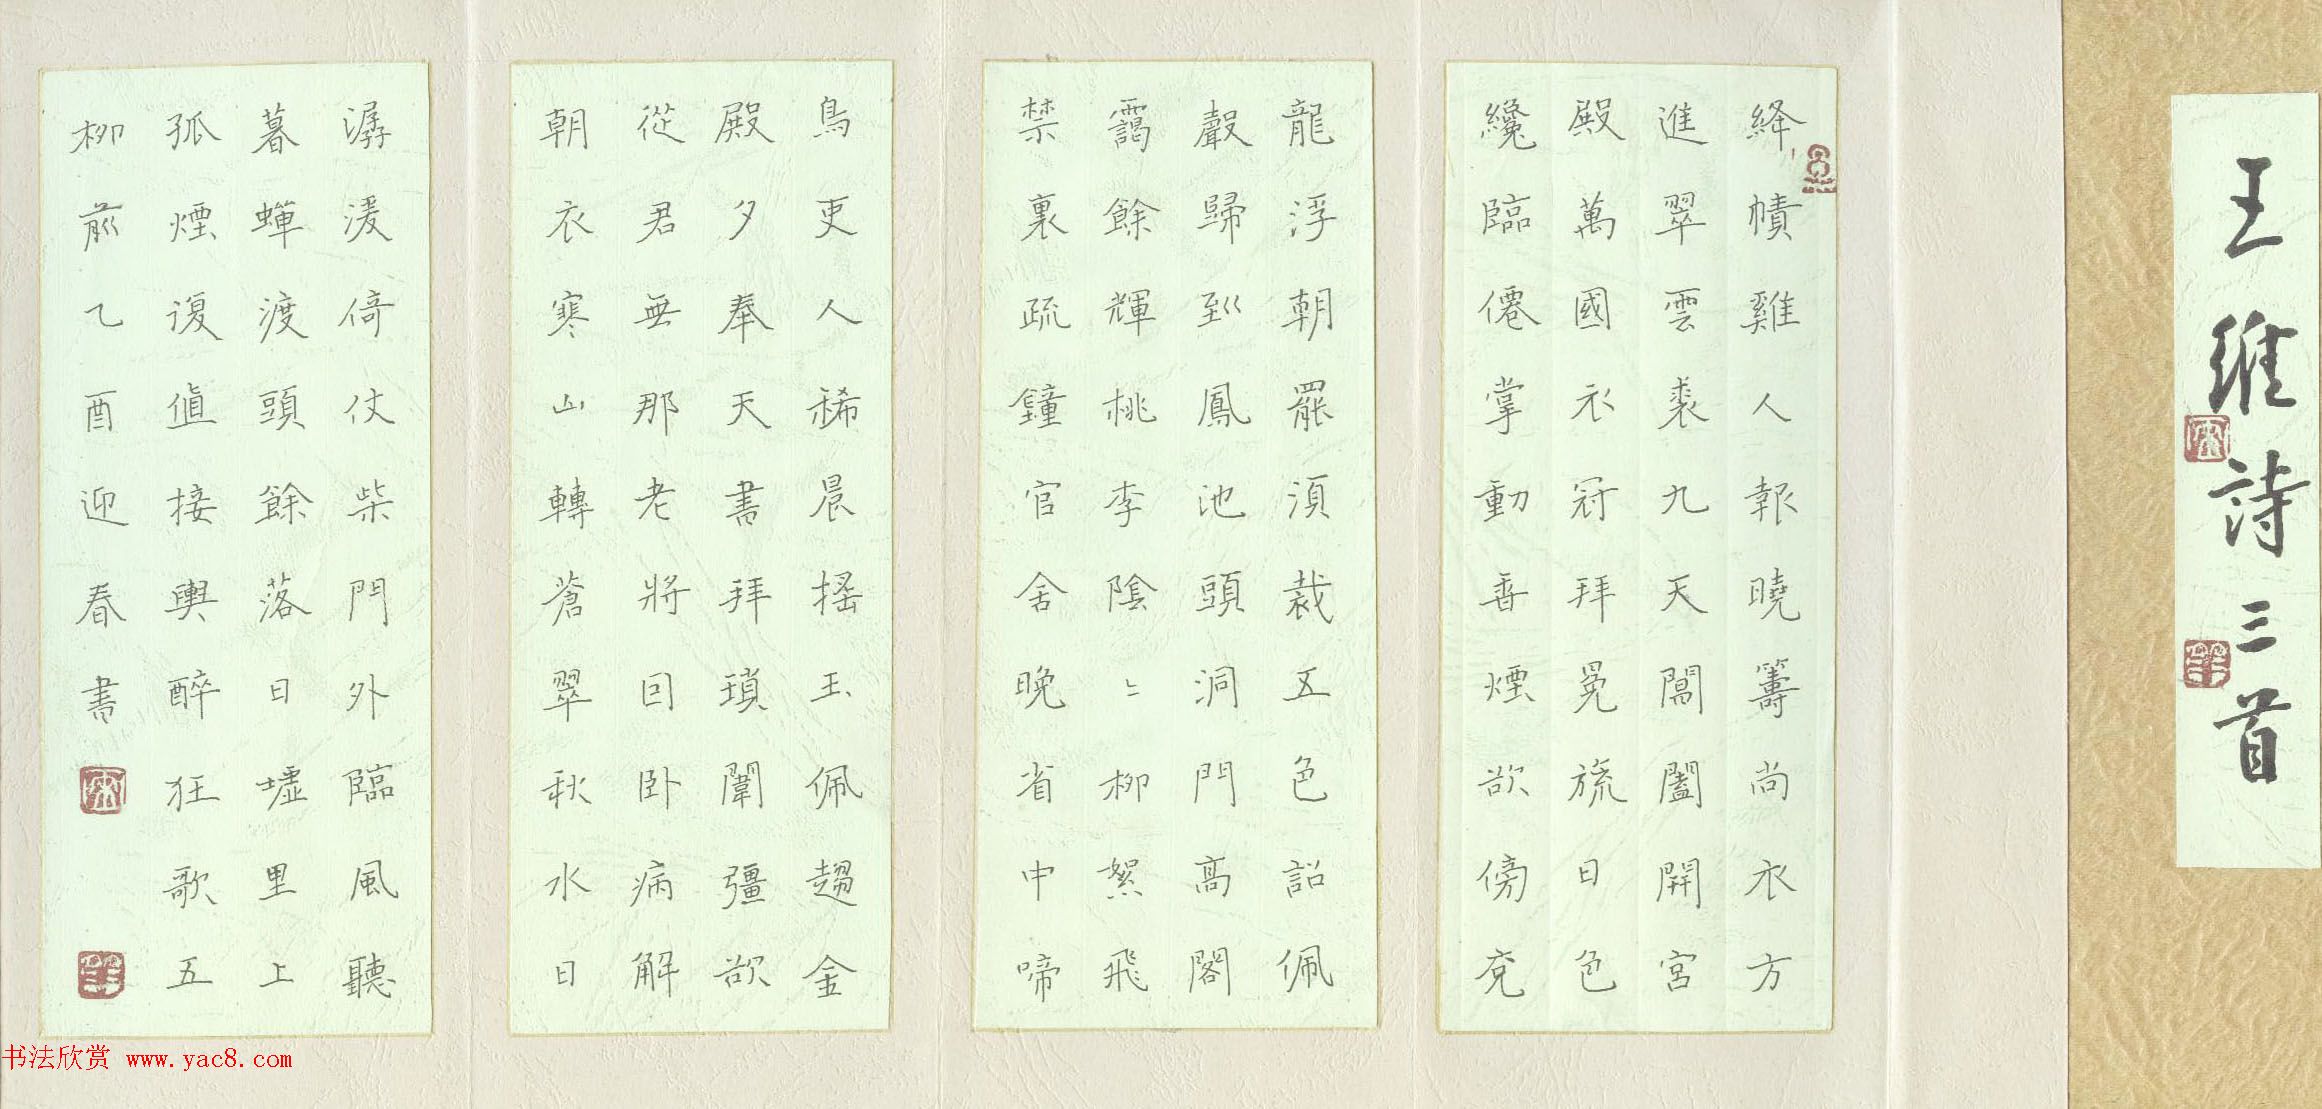 王維詩三首
絳幘雞人報曉籌尚衣方
進翠雲裘九天閶闔開宮
殿萬國衣冠拜冕旒日色
纔臨僊掌動香煙欲傍袞
龍浮朝罷須裁五色詔佩
聲歸到鳳池頭洞門高閣
靄餘輝桃李陰〻柳絮飛
禁裏疏鐘官舍晚省中啼
鳥吏人稀晨搖玉佩趨金
殿夕奉天書拜瑣闈彊欲
從君無那老將因臥病解
朝衣寒山轉蒼翠秋水日
潺湲倚仗柴門外臨風聽
暮蟬渡頭餘落日墟里上
孤煙復值接輿醉狂歌五
柳前乙酉迎春書
书法欣赏 www.yac8.com